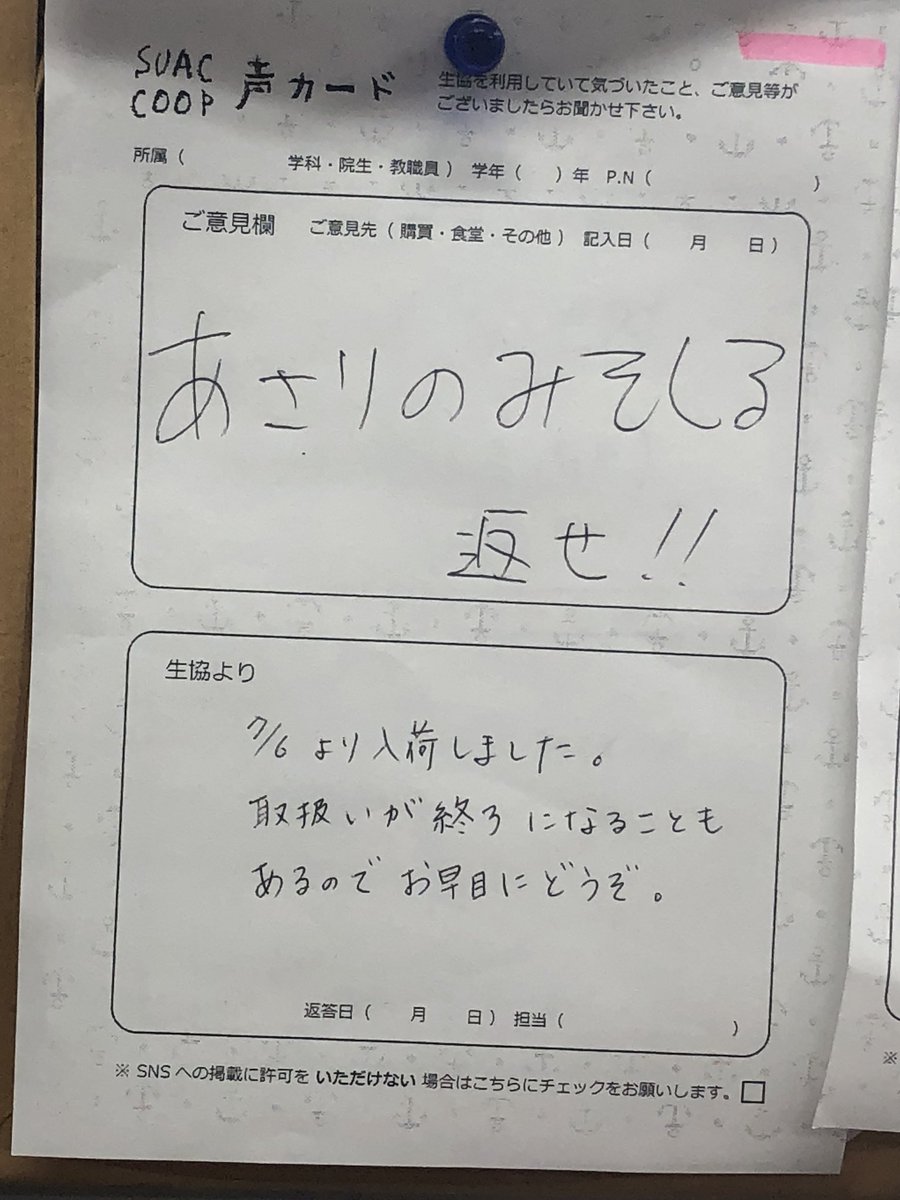 SUAC
COOP 声カード
生協を利用していて気づいたこと、ご意見等が
ございましたらお聞かせ下さい。
所属（　　　学科・院生・教職員） 学年（　）年 P.N（　　　）
ご意見欄 ご意見先（購買・食堂・その他） 記入日（　月　日）
あさりのみそしる
返せ!!
生協より
7/6 より入荷しました。
取扱いが終了になることも
あるのでお早目にどうぞ。
返答日（　月　日） 担当（　　　）
※ SNS への掲載に許可をいただけない場合はこちらにチェックをお願いします。□
※